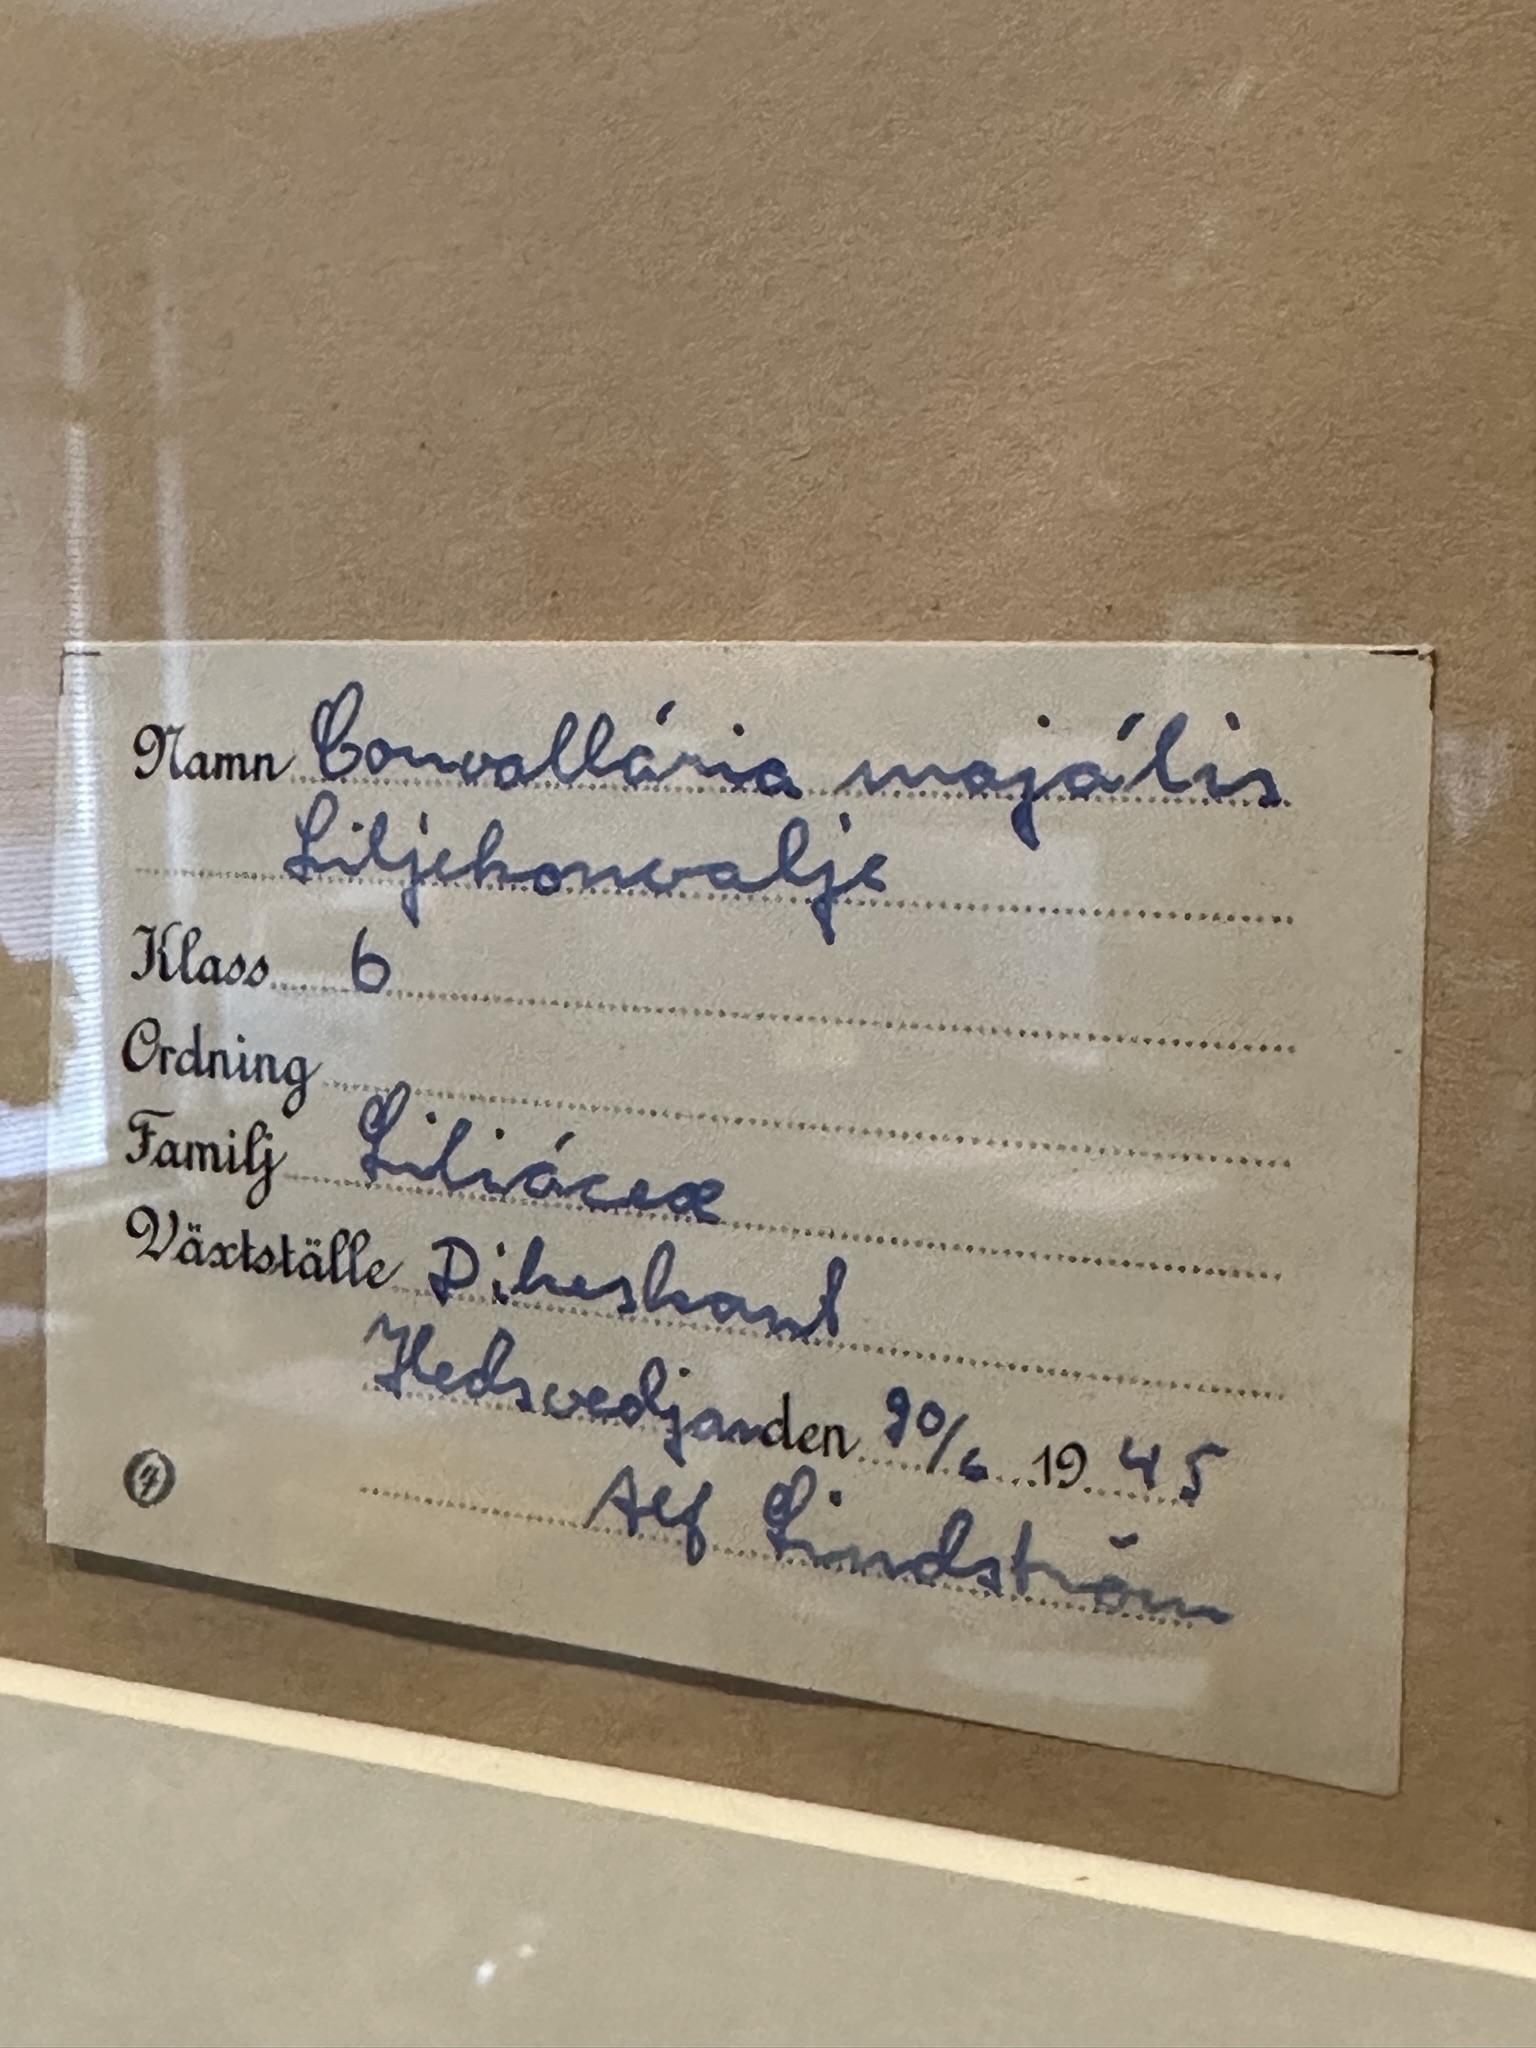 Namn Convallária majális
Liljekonvalje
Klass 6
Ordning
Familj Liliáceæ
Växtställe Dikeskant
Hedsvedjan den 20/6 1945
Alf Lindström